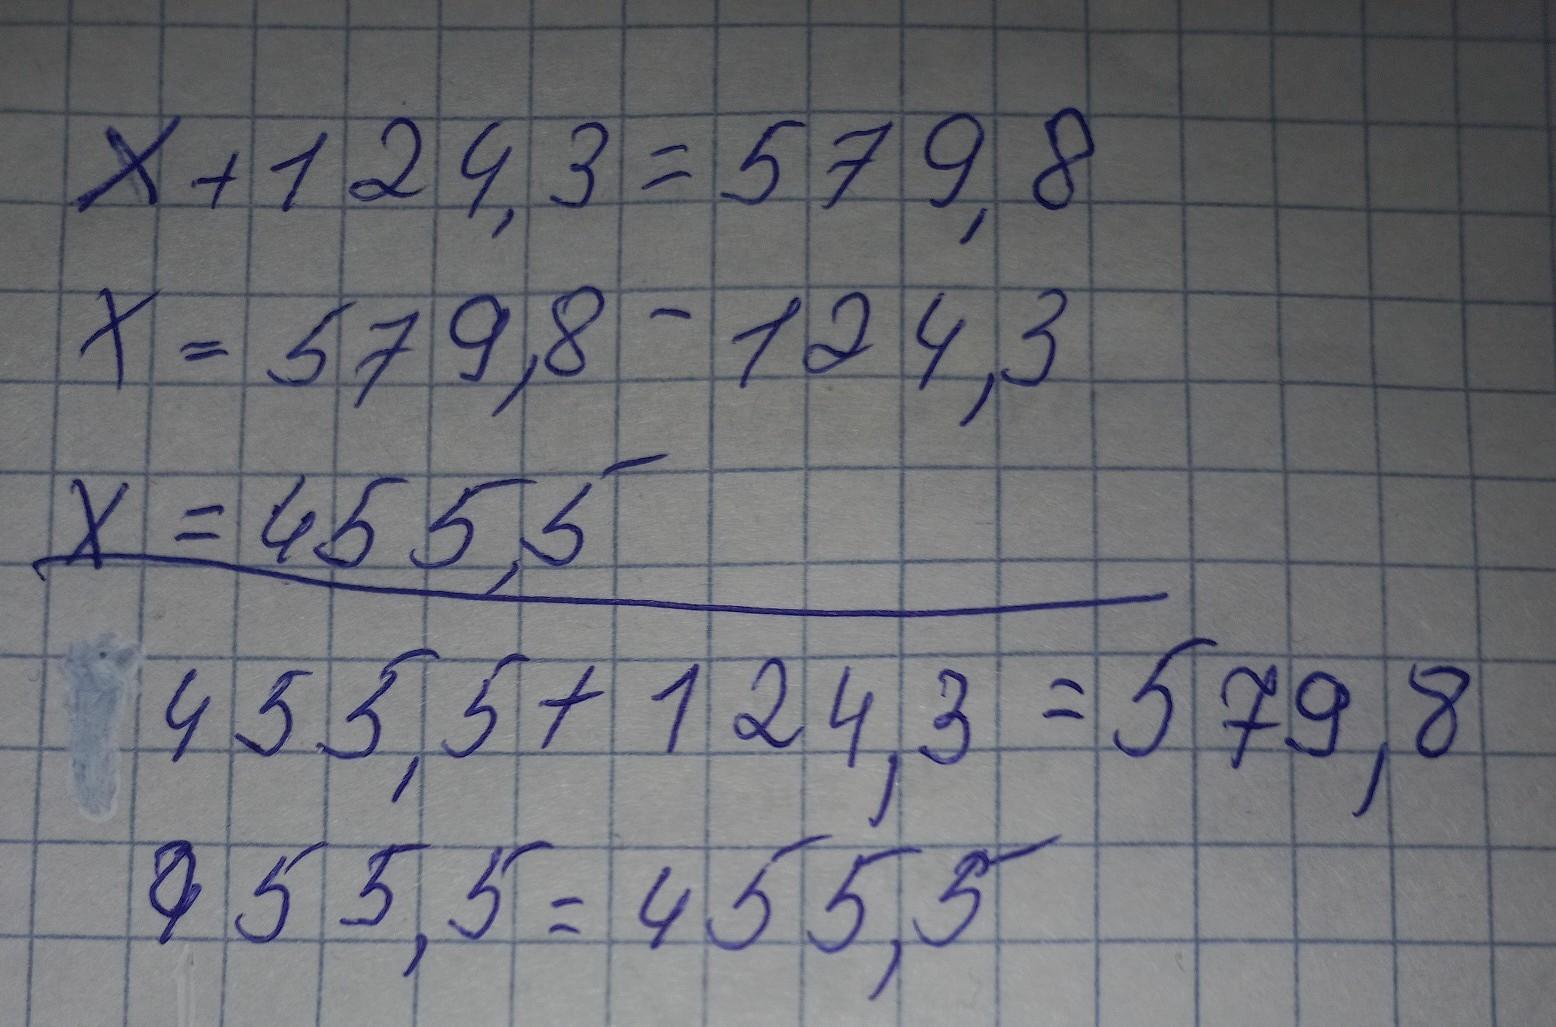 x + 124,3 = 579,8
x = 579,8 - 124,3
x = 455,5
455,5 + 124,3 = 579,8
455,5 = 455,5